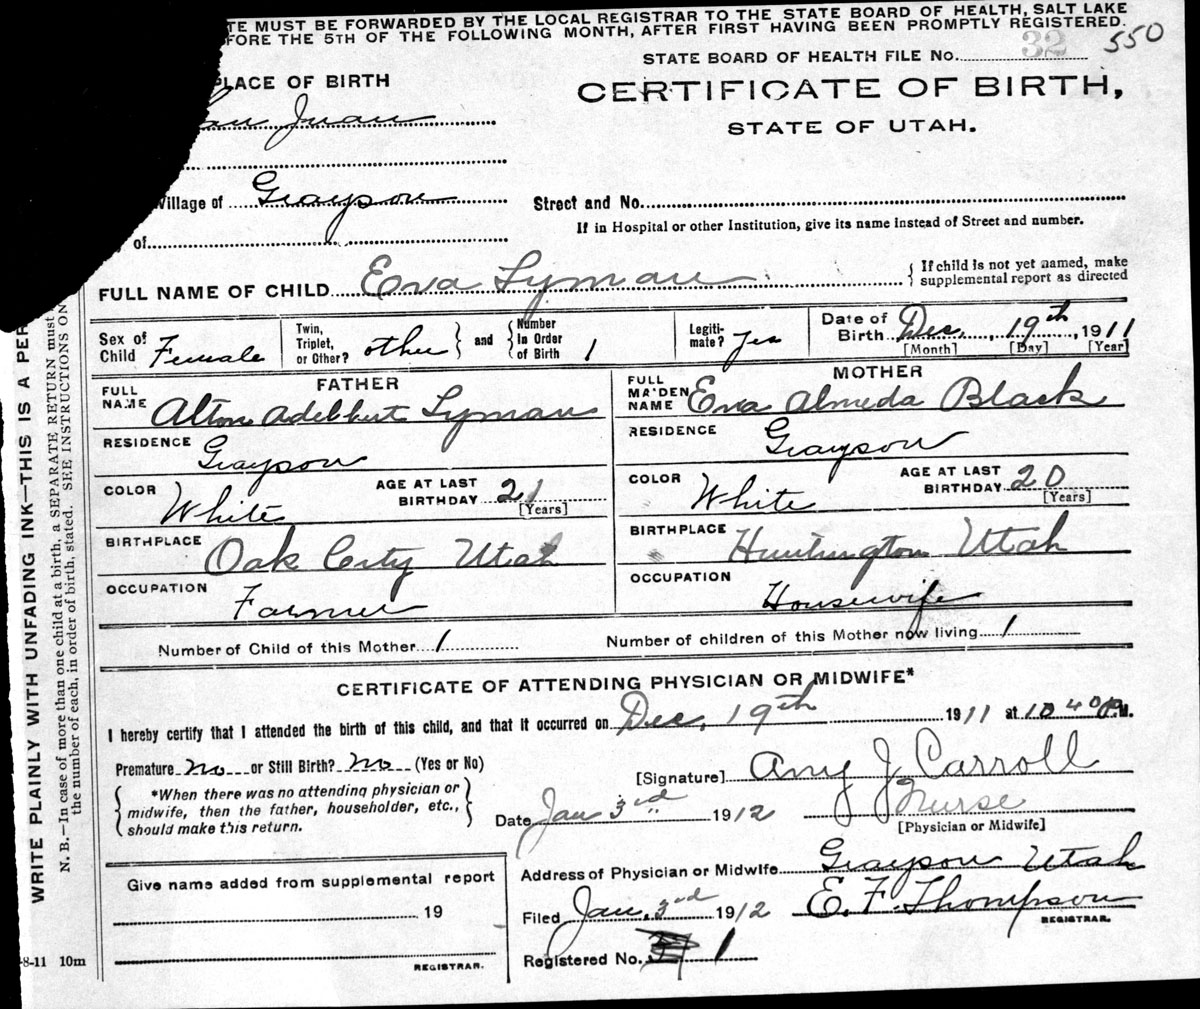 TE MUST BE FORWARDED BY THE LOCAL REGISTRAR TO THE STATE BOARD OF HEALTH, SALT LAKE
FORE THE 5TH OF THE FOLLOWING MONTH, AFTER FIRST HAVING BEEN PROMPTLY REGISTERED.
550
STATE BOARD OF HEALTH FILE No. 32
PLACE OF BIRTH
CERTIFICATE OF BIRTH,
STATE OF UTAH.
San Juan
Village of Grayson
Street and No.
If in Hospital or other Institution, give its name instead of Street and number.
of
FULL NAME OF CHILD Eva Lyman
{ If child is not yet named, make supplemental report as directed
Sex of Child Female
Twin, Triplet, or Other? other } and { Number in Order of Birth 1
Legiti-mate? Yes
Date of Birth Dec. 19th, 1911
[Month] [Day] [Year]
FATHER
FULL NAME Alton Adelbert Lyman
MOTHER
FULL MAIDEN NAME Eva Almeda Black
RESIDENCE Grayson
RESIDENCE Grayson
COLOR White
AGE AT LAST BIRTHDAY 21 [Years]
COLOR White
AGE AT LAST BIRTHDAY 20 [Years]
BIRTHPLACE Oak City Utah
BIRTHPLACE Huntington Utah
OCCUPATION Farmer
OCCUPATION Housewife
Number of Child of this Mother 1
Number of children of this Mother now living 1
CERTIFICATE OF ATTENDING PHYSICIAN OR MIDWIFE*
I hereby certify that I attended the birth of this child, and that it occurred on Dec. 19th 1911 at 10 40 P.M.
Premature no or Still Birth? no (Yes or No)
[Signature] Amy J Carroll
{ *When there was no attending physician or midwife, then the father, householder, etc., should make this return. }
Date Jan 3rd 1912
Nurse
[Physician or Midwife]
Address of Physician or Midwife Grayson Utah
Give name added from supplemental report
19
REGISTRAR.
Filed Jan. 3rd 1912 E. F. Thompson
REGISTRAR.
Registered No. 1
WRITE PLAINLY WITH UNFADING INK—THIS IS A PER
N. B.—In case of more than one child at a birth, a SEPARATE RETURN must
the number of each, in order of birth, stated. SEE INSTRUCTIONS ON
-8-11 10m